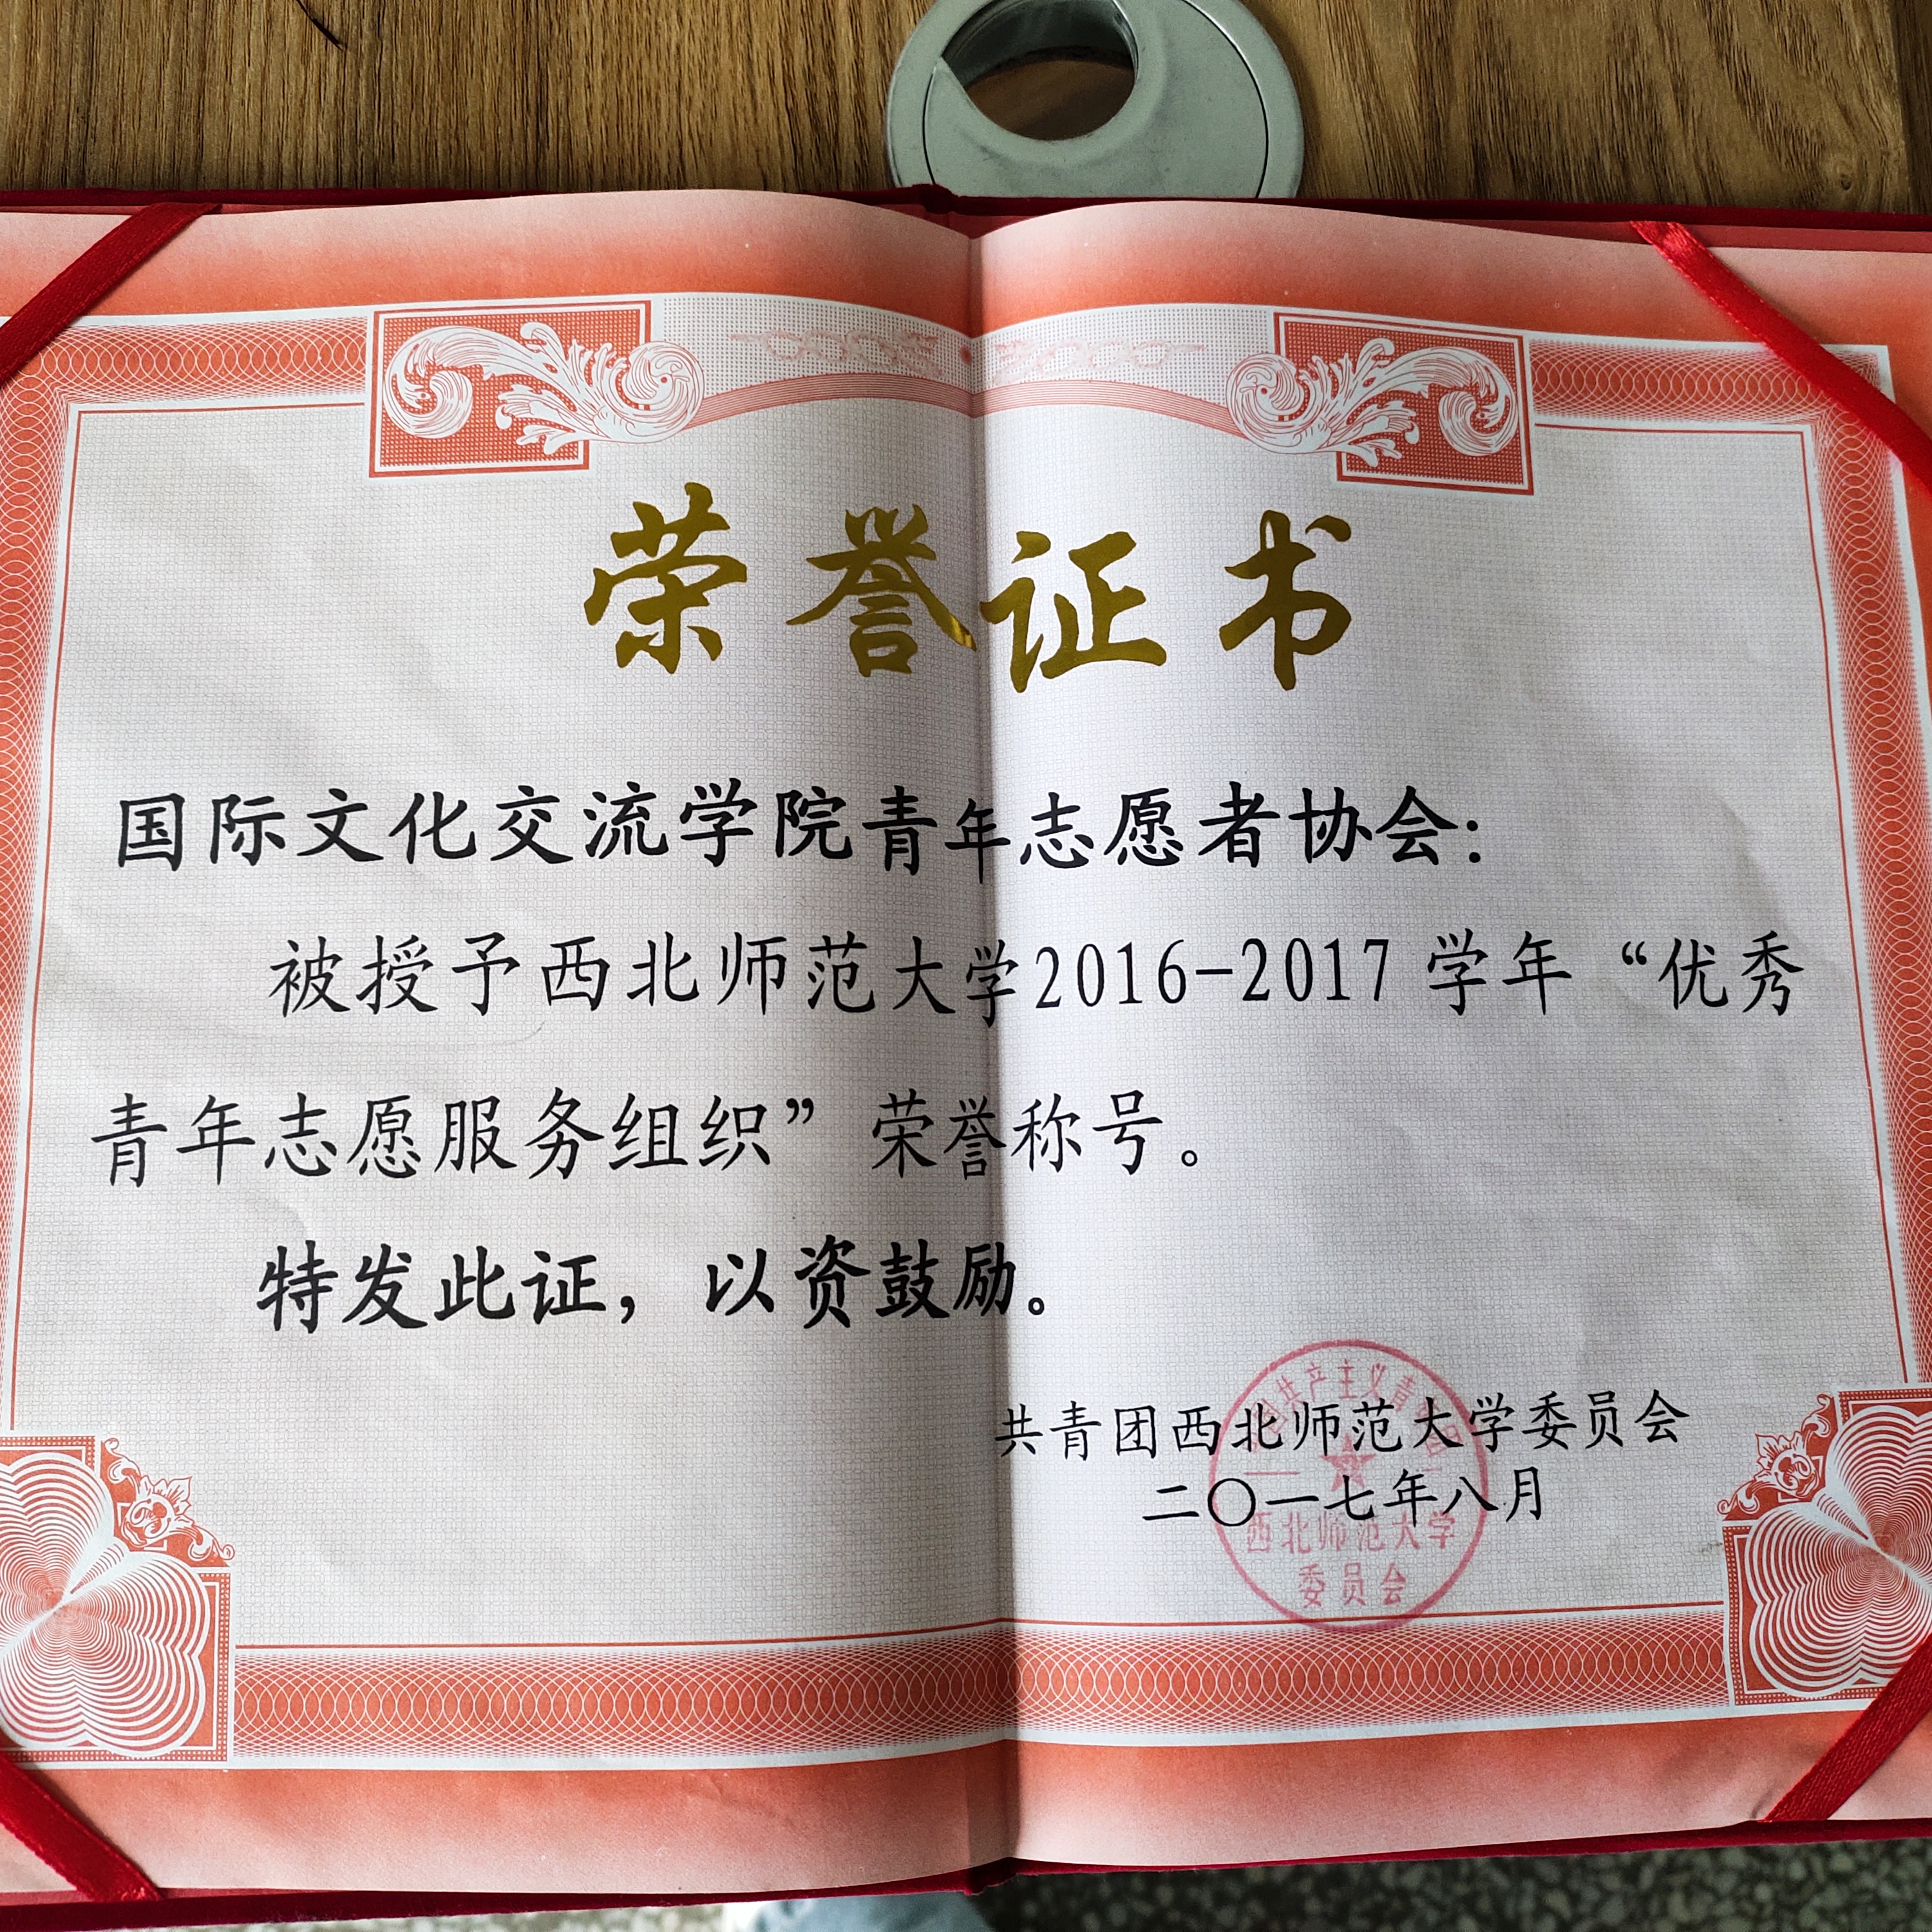 荣誉证书
国际文化交流学院青年志愿者协会:
被授予西北师范大学2016-2017学年“优秀
青年志愿服务组织”荣誉称号。
特发此证，以资鼓励。
共青团西北师范大学委员会
二〇一七年八月
共产主义青
西北师范大学
委员会